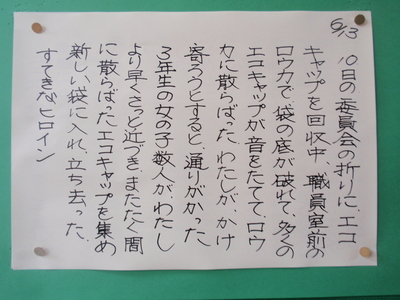 6/13
10日の委員会の折りに、エコ
キャップを回収中、職員室前の
ロウカで袋の底が破れて、多くの
エコキャップが音をたてて、ロウ
カに散らばった。わたしが、かけ
寄ろうとすると、通りがかった
3年生の女の子数人が、わたし
より早くさっと近づき、またたく間
に散らばったエコキャップを集め
新しい袋に入れ、立ち去った。
すてきなヒロイン